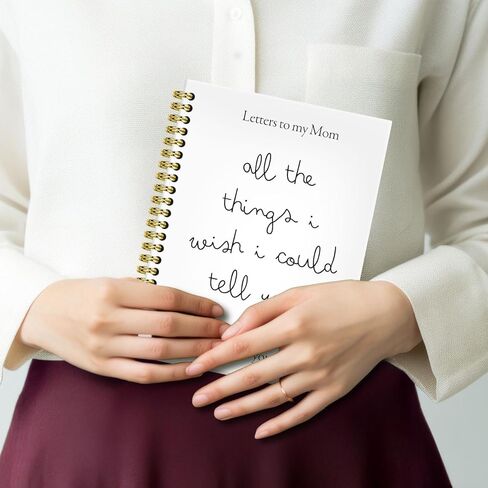 Letters to my Mom
all the
things i
wish i could
tell